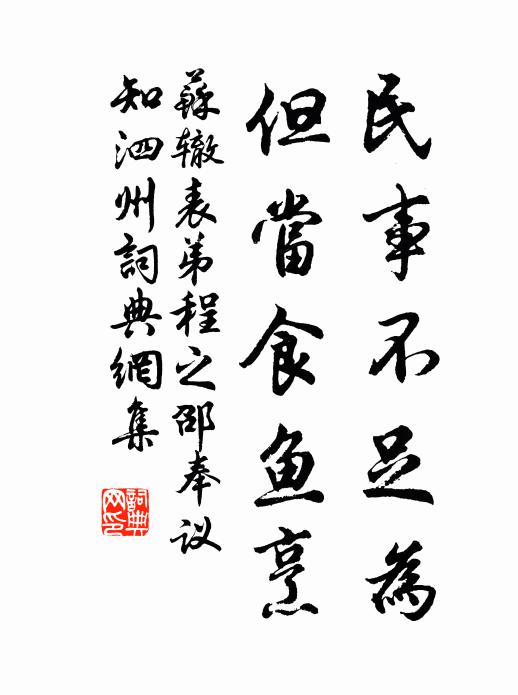 民事不足為
但當食鱼烹
蘇辙表弟程之邵奉议
知泗州詞典網集
詞典网印